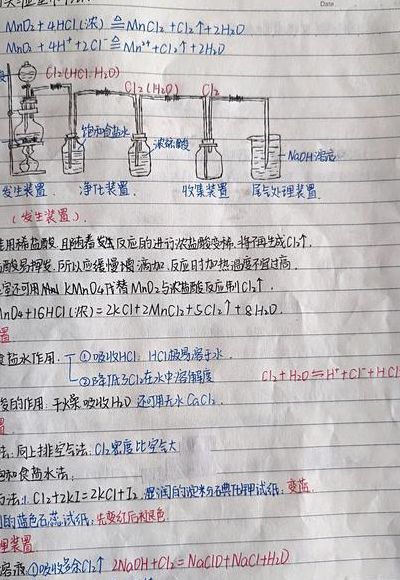 Date
MnO₂+4HCl(浓)≜MnCl₂+Cl₂↑+2H₂O
MnO₂+4H⁺+2Cl⁻≜Mn²⁺+Cl₂↑+2H₂O
Cl₂(HCl·H₂O) Cl₂(H₂O) Cl₂
饱和食盐水 浓硫酸
NaOH溶液
发生装置 净化装置. 收集装置 尾气处理装置.
(发生装置).
使用稀盐酸,且随着反应的进行浓盐酸变稀,将不再生成Cl₂↑.
盐酸易挥发,所以应缓慢滴加,反应时加热温度不宜过高.
室还可用KMnO₄代替MnO₂与浓盐酸反应制Cl₂↑.
nO₄+16HCl(浓)=2KCl+2MnCl₂+5Cl₂↑+8H₂O.
置
食盐水作用. ①吸收HCl. HCl极易溶于水.
②降低Cl₂在水中溶解度
Cl₂+H₂O⇌H⁺+Cl⁻+HCl
酸的作用:干燥吸收H₂O 还可用无水CaCl₂.
置
法:向上排空气法:Cl₂密度比空气大
和食盐水法:
方法:Cl₂+2KI=2KCl+I₂.湿润的淀粉碘化钾试纸:变蓝.
的蓝色石蕊试纸:先变红后褪色
理装置
溶液①吸收多余Cl₂↑ 2NaOH+Cl₂=NaClO+NaCl+H₂O